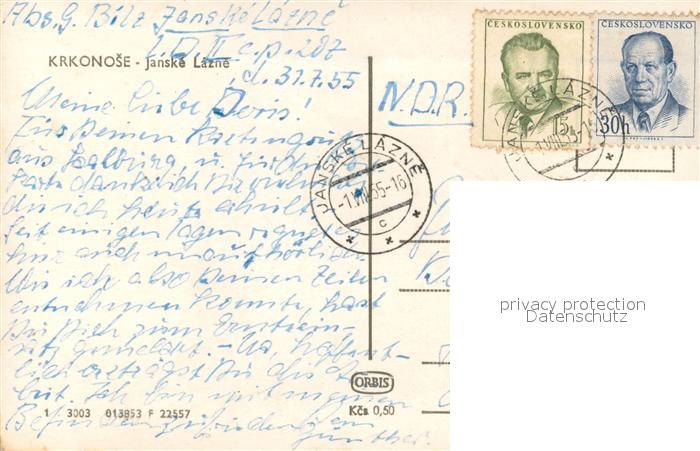 Abs. G. Bilz Janské Lázně
L.D. II č.p. 207
d. 31.7.55
KRKONOŠE - Janské Lázně
Meine liebe Doris!
Für Deinen
aus u. für die
Karte danke ich
die ich heute erhielt.
Seit einigen Tagen regnet es
hier auch unaufhörlich.
Wie ich also Deinen Zeilen
entnehmen konnte, hast
Du Dich zum Ernteein-
satz gemeldet. - Na, hoffent-
lich verträgst Du die
Ich bin mit meinem
Befinden zufrieden. Dein
Günther.
1 3003 013853 F 22557
ORBIS
Kčs 0,50
N.D.R.
ČESKOSLOVENSKO
15h
ČESKOSLOVENSKO
30h
JANSKÉ LÁZNĚ
-1.VIII.55-16
c
JANSKÉ LÁZNĚ
privacy protection
Datenschutz